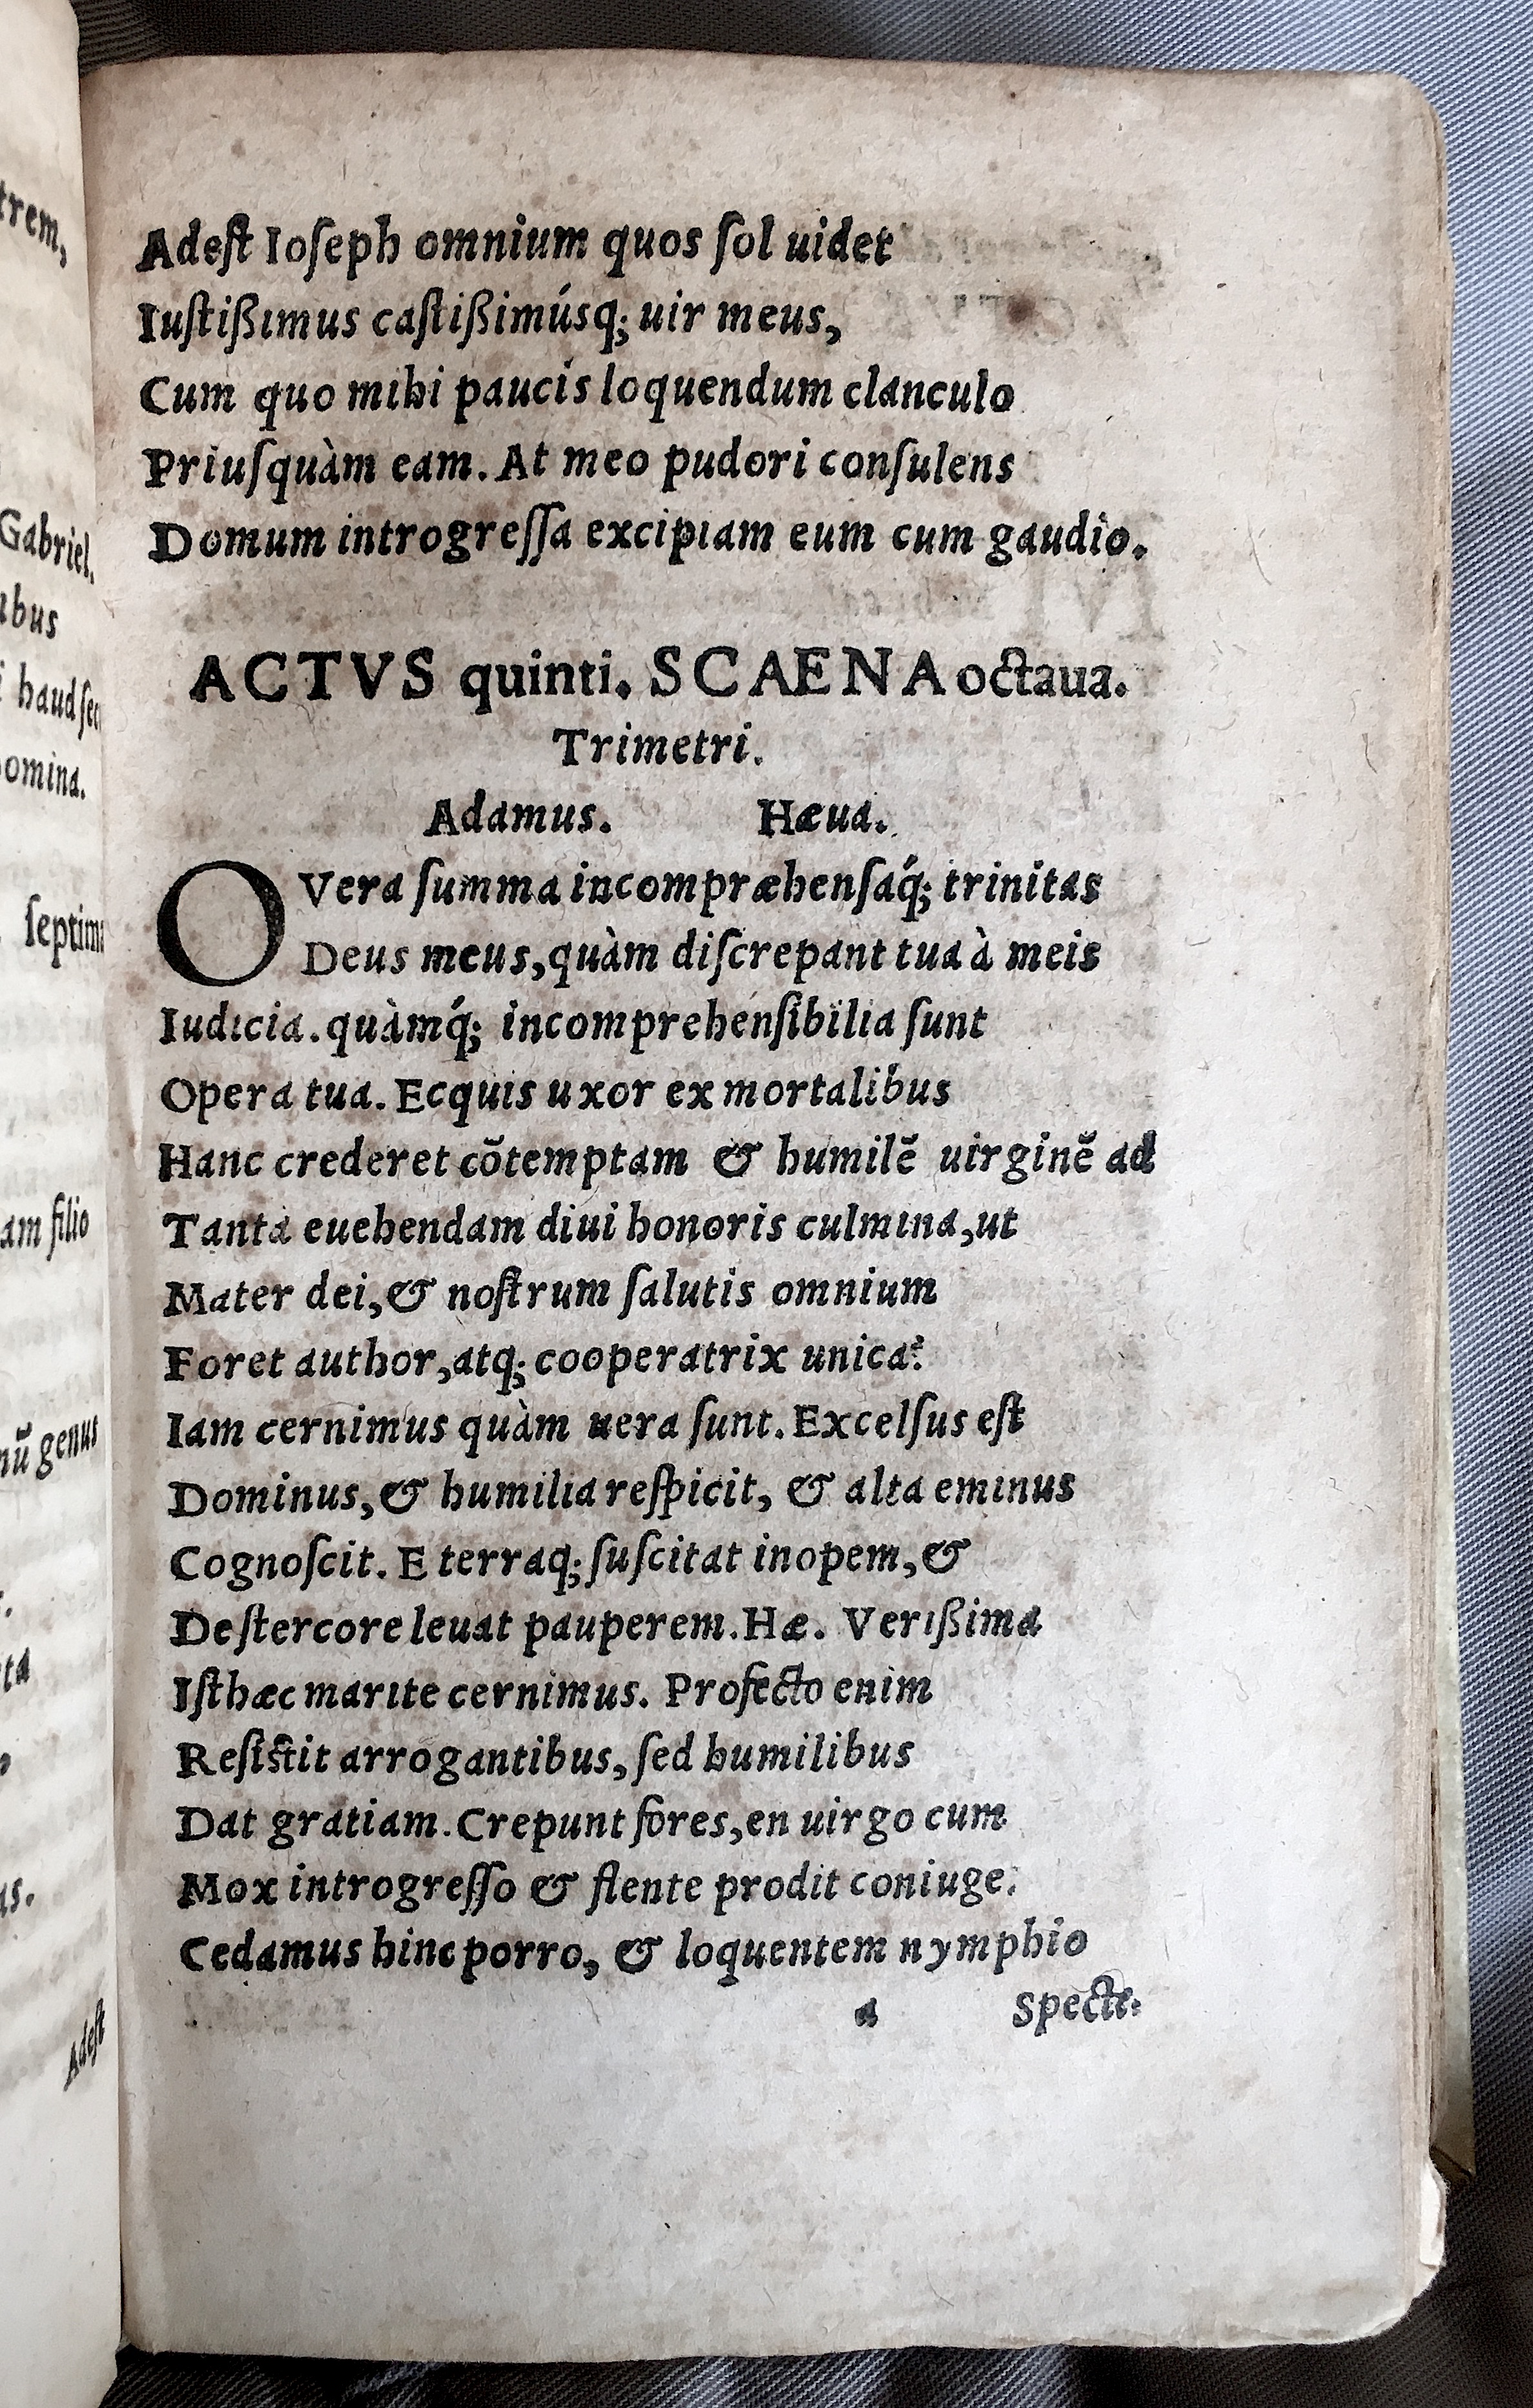 trem,
Gabriel.
haud sec
omina.
septima
am filio
nũ genus
Adest
Adeſt Ioſeph omnium quos ſol uidet
Iuſtißimus caſtißimúsq; uir meus,
Cum quo mihi paucis loquendum clanculo
Priuſquàm eam. At meo pudori conſulens
Domum introgreſſa excipiam eum cum gaudio.
ACTVS quinti. SCAENA octaua.
Trimetri.
Adamus. Hæua.
O Vera ſumma incompræhenſaq́; trinitas
Deus meus, quàm diſcrepant tua à meis
Iudicia. quàmq́; incomprehenſibilia ſunt
Opera tua. Ecquis uxor ex mortalibus
Hanc crederet cõtemptam & humilẽ uirginẽ ad
Tanta euehendam diui honoris culmina, ut
Mater dei, & noſtrum ſalutis omnium
Foret author, atq; cooperatrix unica?
Iam cernimus quàm uera ſunt. Excelſus eſt
Dominus, & humilia reſpicit, & alta eminus
Cognoſcit. E terraq; ſuſcitat inopem, &
De ſtercore leuat pauperem. Hæ. Verißima
Iſthæc marite cernimus. Profecto enim
Reſiſtit arrogantibus, ſed humilibus
Dat gratiam. Crepunt fores, en uirgo cum
Mox introgreſſo & flente prodit coniuge.
Cedamus hinc porro, & loquentem nymphio
a Specte: